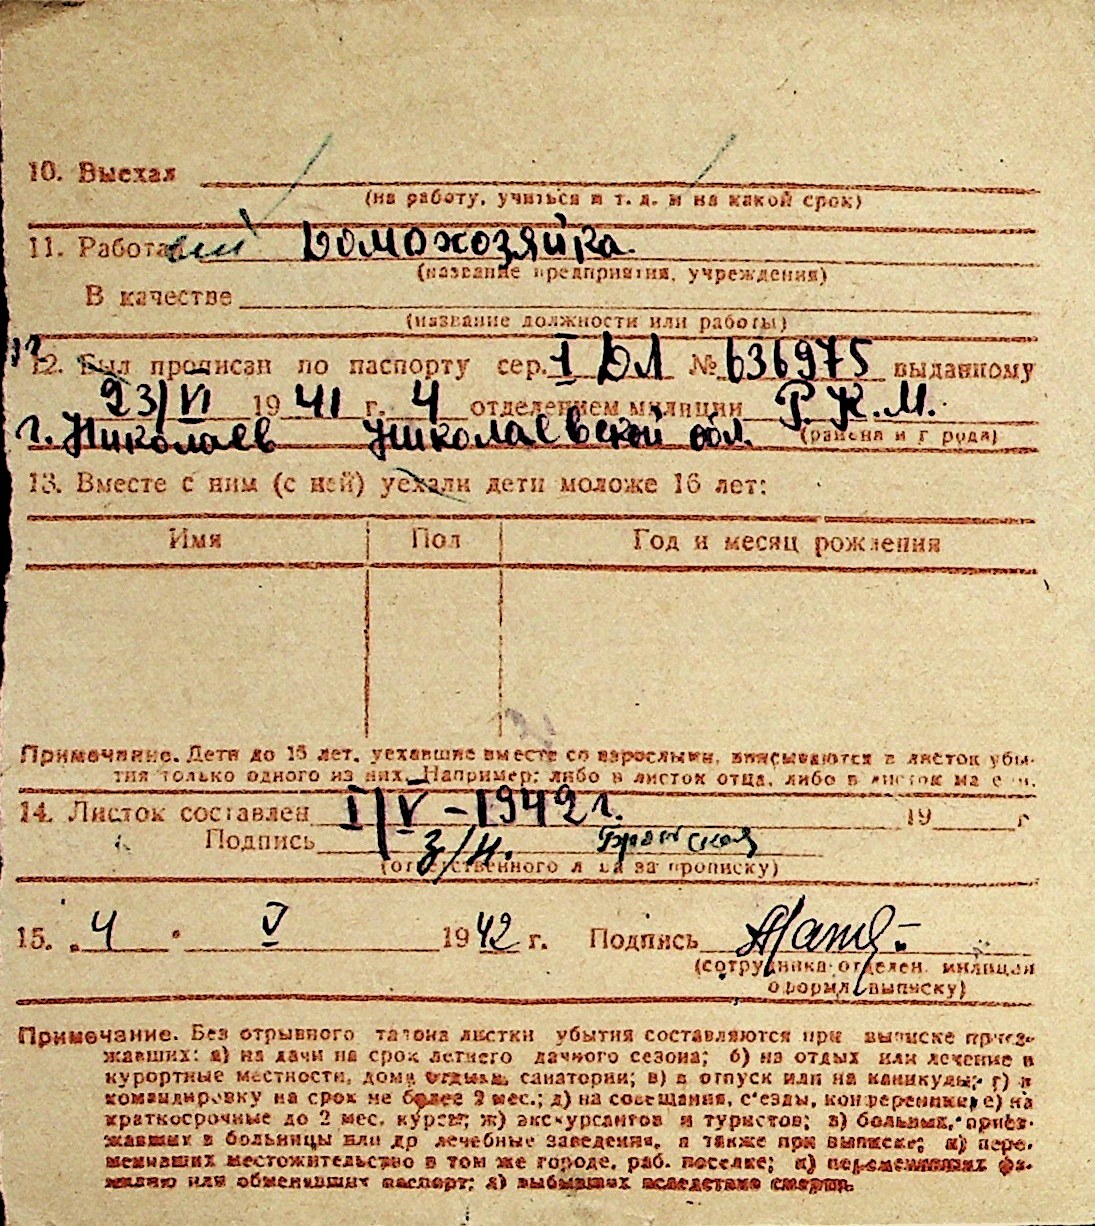 10. Выехал
(на работу, учиться и т. д. и на какой срок)
11. Работа Домохозяйка.
(название предприятия, учреждения)
В качестве
(название должности или работы)
12. Был прописан по паспорту сер. I ДЛ № 636975 выданному
23/VI 1941 г. 4 отделением милиции Р.К.М.
г. Николаев Николаевской обл. (района и города)
13. Вместе с ним (с ней) уехали дети моложе 16 лет:
Имя Пол Год и месяц рождения
Примечание. Дети до 16 лет, уехавшие вместе со взрослыми, вписываются в листок убы-
тия только одного из них. Например: либо в листок отца, либо в листок матери.
14. Листок составлен I/V - 1942 г. 19 г
Подпись
(ответственного лица за прописку)
15. "4" V 1942 г. Подпись
(сотрудника отделен. милиции
оформл. выписку)
Примечание. Без отрывного талона листки убытия составляются при выписке приез-
жавших: а) на дачи на срок летнего дачного сезона; б) на отдых или лечение в
курортные местности, дома отдыха, санатории; в) в отпуск или на каникулы; г) в
командировку на срок не более 2 мес.; д) на совещания, с'езды, конференции; е) на
краткосрочные до 2 мес. курсы; ж) экскурсантов и туристов; з) больных, приез-
жавших в больницы или др лечебные заведения, а также при выписке; и) пере-
менивших местожительство в том же городе, раб. поселке; к) переменивших фа-
милию или обменивших паспорт; л) выбывших вследствие смерти.